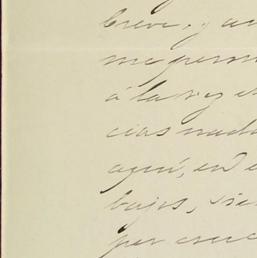 breve, y au
me perm
á la vez e
cias nada
aquí, en e
bajos, sie
por